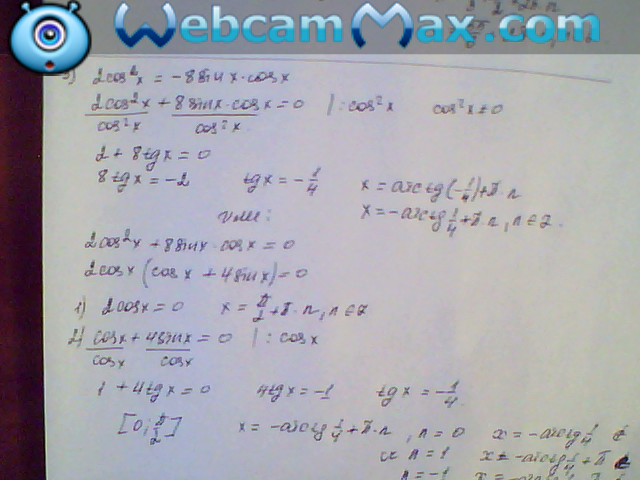 WebcamMax.com
2cos²x = -8sinx·cosx
2cos²x + 8sinx·cosx = 0 | : cos²x cos²x ≠ 0
cos²x cos²x
2 + 8tgx = 0
8tgx = -2 tgx = -1/4 x = arctg(-1/4) + π·n
x = -arctg 1/4 + π·n, n ∈ Z.
или:
2cos²x + 8sinx·cosx = 0
2cosx (cosx + 4sinx) = 0
1) 2cosx = 0 x = π/2 + π·n, n ∈ Z
2) cosx + 4sinx = 0 | : cosx
cosx cosx
1 + 4tgx = 0 4tgx = -1 tgx = -1/4.
[0; π/2] x = -arctg 1/4 + π·n, n = 0 x = -arctg 1/4
n = 1 x = -arctg 1/4 + π
n = -1